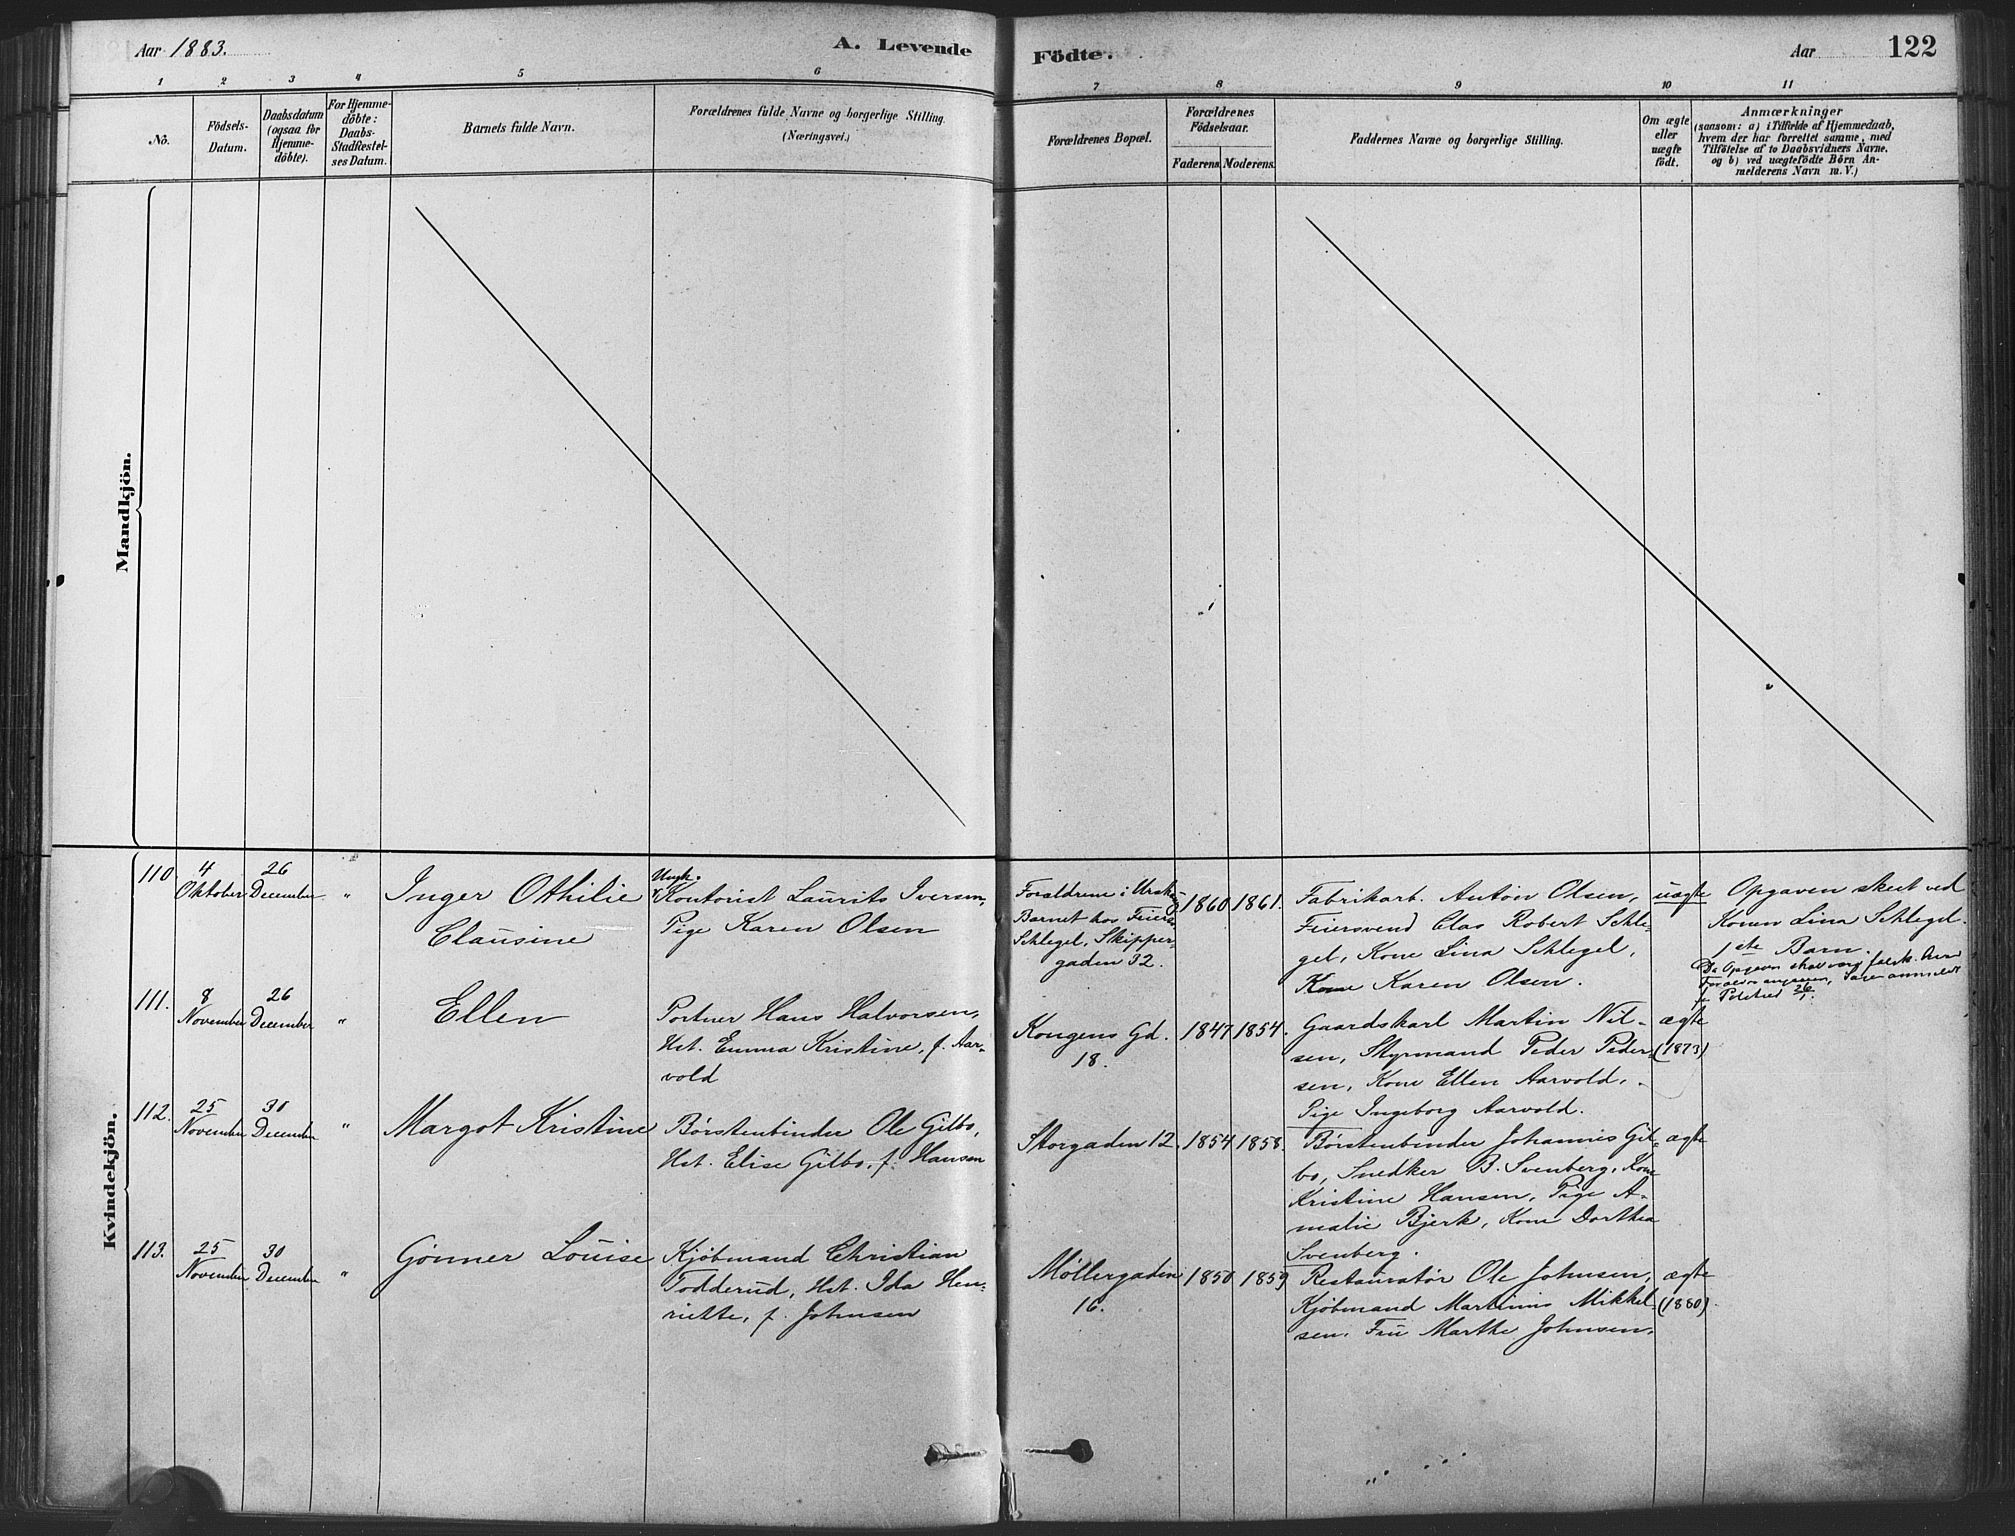 Aar 1883.
A. Levende
Födte.
Aar
122
1 2 3 4 5 6
7 8 9 10 11
No.
Födsels-
Datum.
Daabsdatum
(ogsaa for
Hjemme-
döbte).
For Hjemme-
döbte:
Daabs-
Stadfestel-
ses Datum.
Barnets fulde Navn.
Forældrenes fulde Navne og borgerlige Stilling.
(Næringsvei.)
Forældrenes Bopæl.
Forældrenes
Födselsaar.
Faderens. Moderens.
Faddernes Navne og borgerlige Stilling.
Om ægte
eller
uægte
födt.
Anmærkninger
(saasom: a) i Tilfælde af Hjemmedaab,
hvem der har forrettet samme, med
Tilföielse af to Daabsvidners Navne,
og b) ved uægtefödte Börn An-
melderens Navn m. V.)
Mandkjön.
Kvindekjön.
110
4
Oktober
26
December
"
Inger Othilie
Clausine
Ungk.
Kontorist Laurits Iversen,
Pige Karen Olsen
Forældrene i
Barnet hos Feiersv.
Schlegel, Skipper-
gaden 32.
1860 1861.
Fabrikarb. Anton Olsen,
Feiersvend Clas Robert Schle-
gel, Kone Lina Schlegel,
Kone Karen Olsen.
uægte
Opgaven skeet ved
Konen Lina Schlegel.
1ste Barn.
Da Opgaven skal være falsk.
111.
8
November
26
December
"
Ellen
Portner Hans Halvorsen,
Hst. Emma Kristine, f. Aar-
vold
Kongens Gd.
18.
1847 1854.
Gaardskarl Martin Niel-
sen, Styrmand Peder Peder-
sen, Kone Ellen Aarvold,
Pige Ingeborg Aarvold.
ægte
(1873)
112.
25
November
30
December
"
Margot Kristine
Børstenbinder Ole Gilbo,
Hst. Elise Gilbo, f. Hansen
Storgaden 12.
1854 1858.
Børstenbinder Johannes Gil-
bo, Snedker B. Svenberg, Kone
Kristine Hansen, Pige A-
malie Bjerk, Kone Dorthea
Svenberg.
ægte
113.
25
November
30
December
"
Gønner Louise
Kjøbmand Christian
Todderud, Hst. Ida Hen-
riette, f. Johnsen
Møllergaden
16.
1850 1859
Restauratør Ole Johnsen,
Kjøbmand Martinius Mikkel-
sen. Fru Marthe Johnsen.
ægte
(1880)